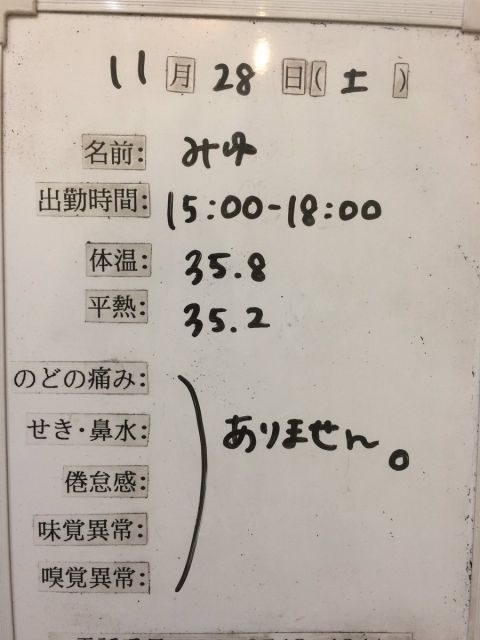 11月28日(土)
名前: みゆ
出勤時間: 15:00-18:00
体温: 35.8
平熱: 35.2
のどの痛み:
せき・鼻水:
ありません。
倦怠感:
味覚異常:
嗅覚異常: